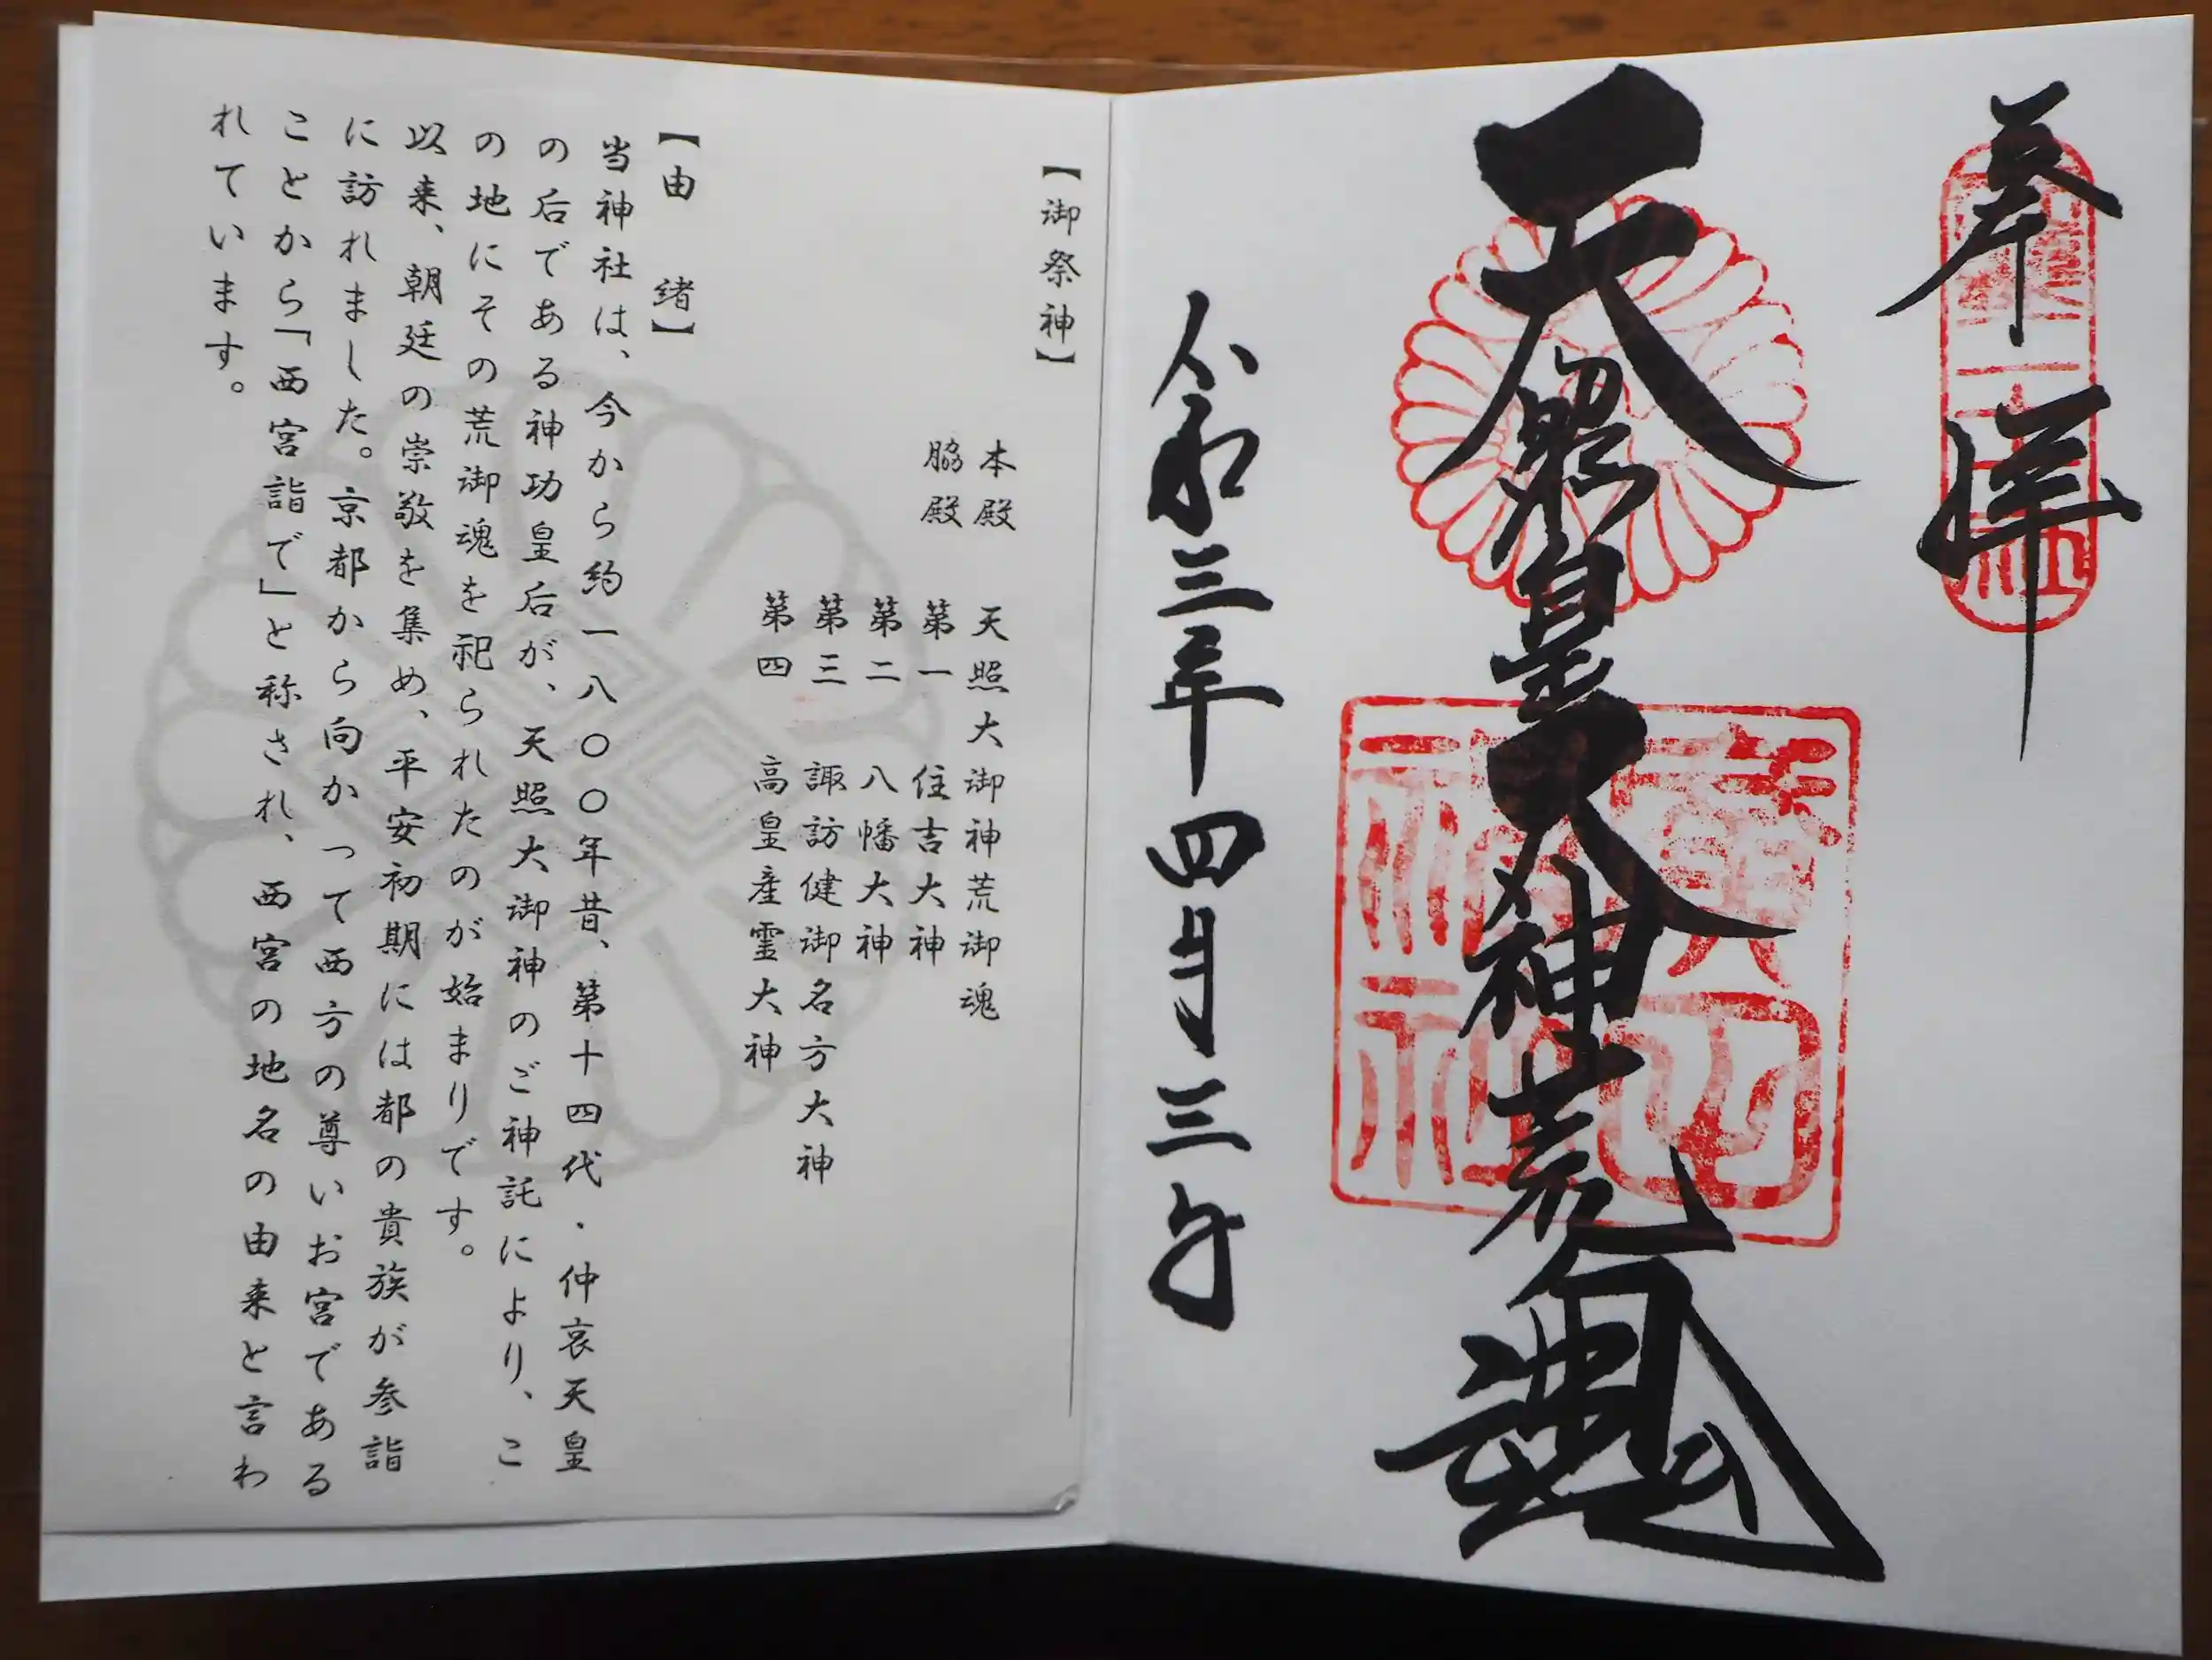 奉拝
天照皇大神荒魂
廣田
神社
令和三年四月三日
【御祭神】
本殿　天照大御神荒御魂
脇殿　第一　住吉大神
第二　八幡大神
第三　諏訪健御名方大神
第四　高皇産霊大神
【由　緒】
当神社は、今から約一八〇〇年昔、第十四代・仲哀天皇
の后である神功皇后が、天照大御神のご神託により、こ
の地にその荒御魂を祀られたのが始まりです。
以来、朝廷の崇敬を集め、平安初期には都の貴族が参詣
に訪れました。京都から向かって西方の尊いお宮である
ことから「西宮詣で」と称され、西宮の地名の由来と言わ
れています。